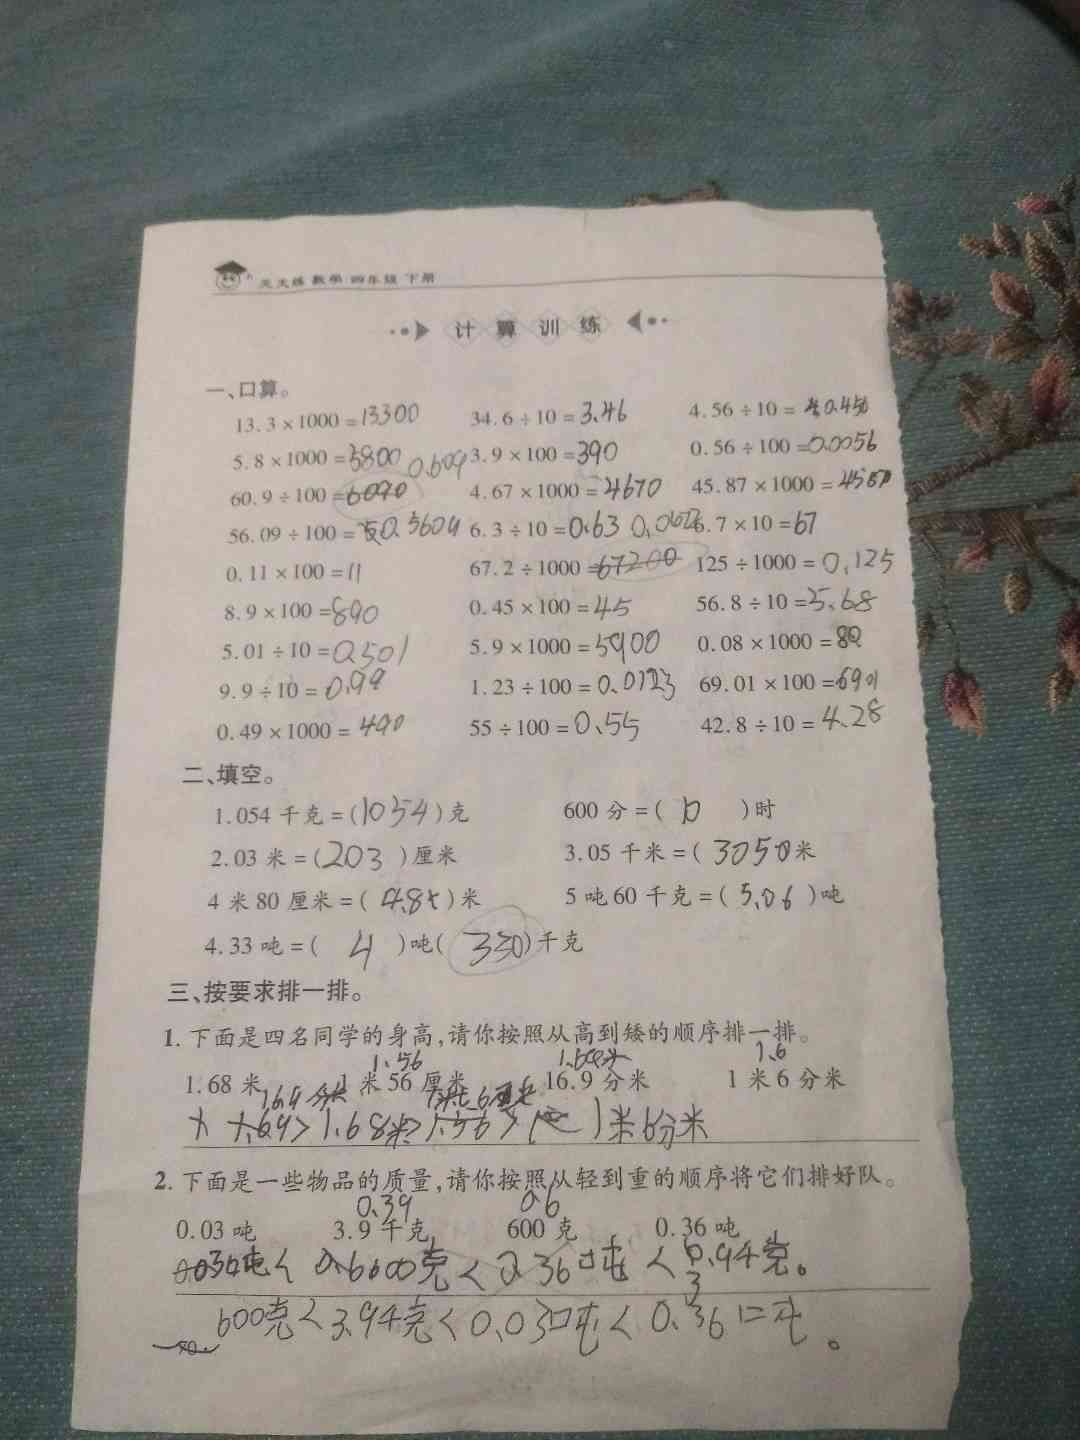 天天练 数学 四年级 下册
计算训练
一、口算。
13.3×1000=13300 34.6÷10=3.46 4.56÷10=0.456
5.8×1000=5800 3.9×100=390 0.56÷100=0.0056
0.609
60.9÷100=6090 4.67×1000=4670 45.87×1000=45870
56.09÷100=0.5609 6.3÷10=0.63 6.7×10=67
0.11×100=11 67.2÷1000=67200 125÷1000=0.125
8.9×100=890 0.45×100=45 56.8÷10=5.68
5.01÷10=0.501 5.9×1000=5900 0.08×1000=80
9.9÷10=0.99 1.23÷100=0.0123 69.01×100=6901
0.49×1000=490 55÷100=0.55 42.8÷10=4.28
二、填空。
1.054千克=(1054)克 600分=(10)时
2.03米=(203)厘米 3.05千米=(3050米
4米80厘米=( )米 5吨60千克=(5.06)吨
4.33吨=(4)吨(330)千克
三、按要求排一排。
1.下面是四名同学的身高,请你按照从高到矮的顺序排一排。
1.56 1.6
1.68米 1米56厘米 16.9分米 1米6分米
1.69>1.68米>1.56> 1米6分米
2.下面是一些物品的质量,请你按照从轻到重的顺序将它们排好队。
0.39 0.6
0.03吨 3.9千克 600克 0.36吨
600克<3.9千克<0.03吨<0.36吨。